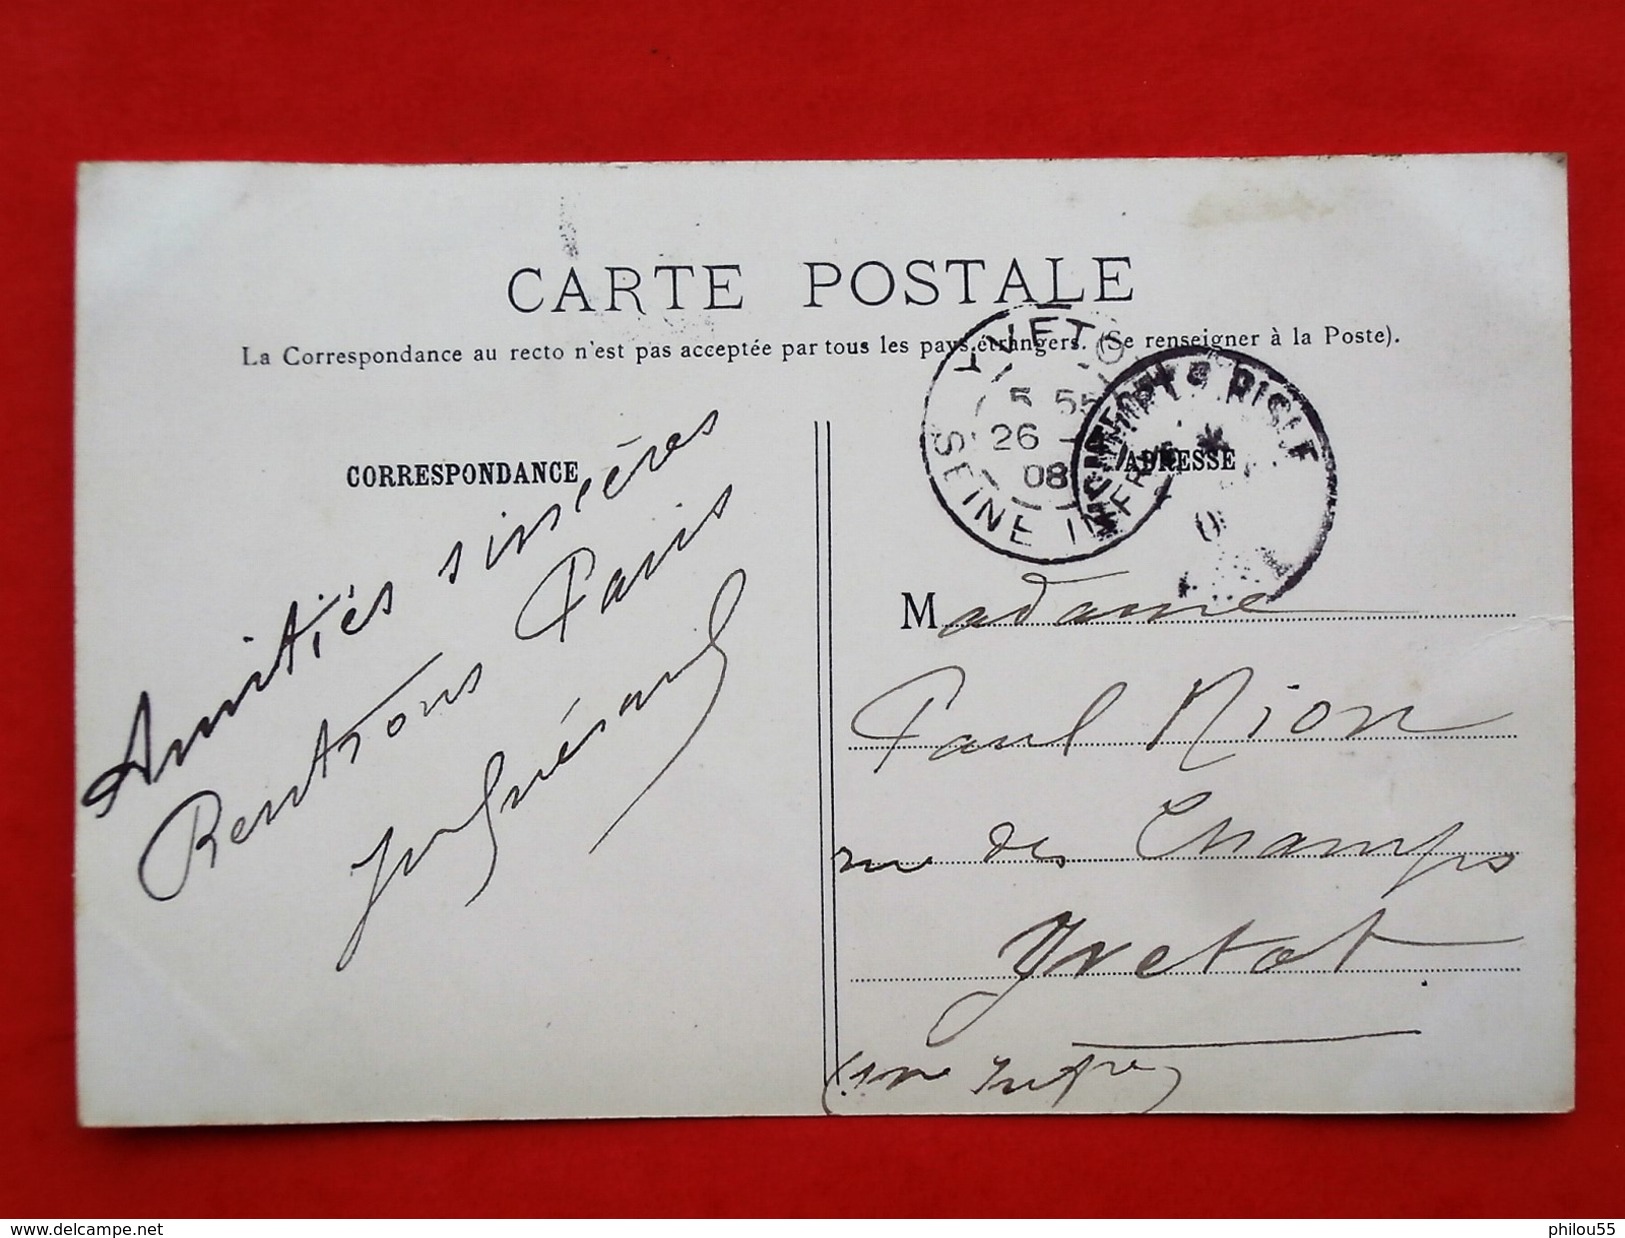 CARTE POSTALE
La Correspondance au recto n'est pas acceptée par tous les pays étrangers. (Se renseigner à la Poste).
YVETO
5 55
26
08
SEINE INFRE
RISLE
CORRESPONDANCE
ADRESSE
Amitiés sincères
Rentrons Paris
Madame
Paul Nion
rue des Champs
Yvetot
www.delcampe.net
philou55